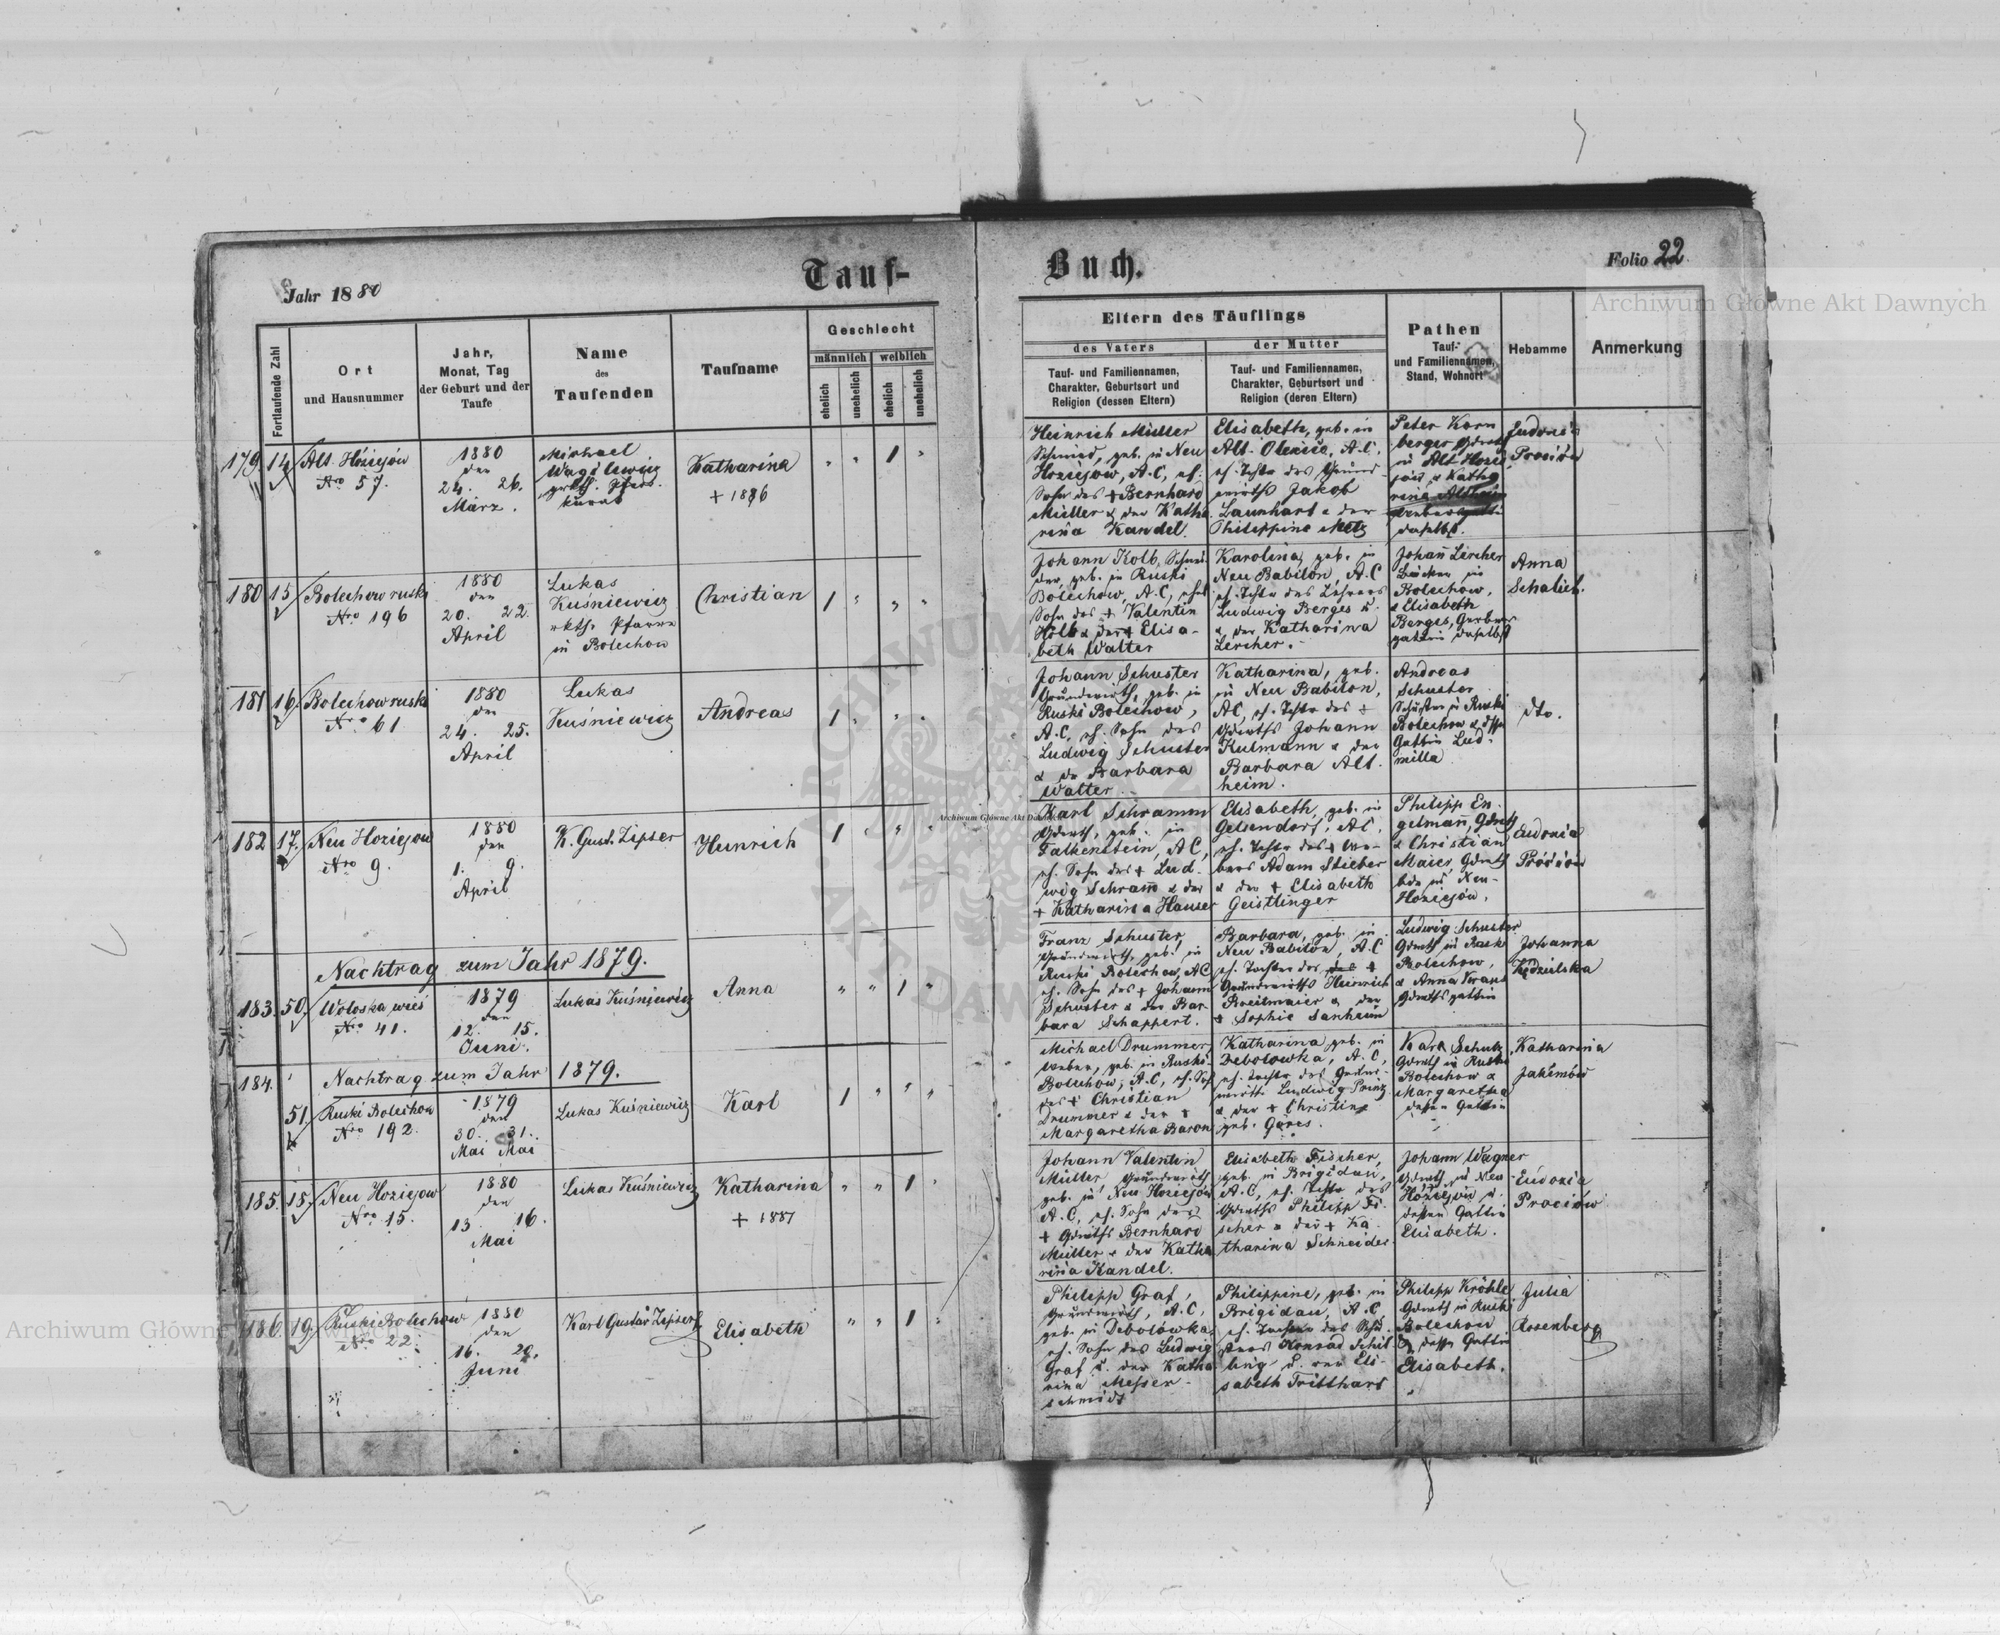 Tauf-
Buch.
Jahr 1880
Folio 22
Archiwum Główne Akt Dawnych
Fortlaufende Zahl
Ort
und Hausnummer
Jahr,
Monat, Tag
der Geburt und der
Taufe
Name
des
Taufenden
Taufname
Geschlecht
männlich
weiblich
ehelich
unehelich
ehelich
unehelich
Eltern des Täuflings
des Vaters
Tauf- und Familiennamen,
Charakter, Geburtsort und
Religion (dessen Eltern)
der Mutter
Tauf- und Familiennamen,
Charakter, Geburtsort und
Religion (deren Eltern)
Pathen
Tauf-
und Familiennamen,
Stand, Wohnort
Hebamme
Anmerkung
179 14
Alt Hoziejów
Nro 57.
1880
den
24. 26.
März.
Michael
Katharina
+ 1886
1
Heinrich Müller
Schmied, geb. in Neu
Hoziejow, A.C, eh.
Sohn des + Bernhard
Müller & der Katha
rina Kandel.
Elisabeth, geb. in
Alt A.C,
eh. Tochter des Grund
wirths Jakob
Launhart & der
Philippine Metz
Peter Korn
berger
in Alt Hozie
daselbst.
180 15
Bolechow ruski
Nro 196
1880
den
20. 22.
April
Lukas
Kuśniewicz
rkth. Pfarrer
in Bolechow
Christian
1
Johann Kolb, Schnei
der, geb. in Ruski
Bolechow, A.C, ehel
Sohn des + Valentin
Kolb & der + Elisa-
beth Walter
Karolina, geb. in
Neu Babilon, A.C
eh. Tochter des Lehrers
Ludwig Berges
& der Katharina
Lercher.
Johan̄ Lercher
in
Bolechow,
& Elisabeth
Berges, Gerber
gattin daselbst
Anna
Schalich.
181 16
Bolechow ruski
Nro 61
1880
den
24. 25.
April
Lukas
Kuśniewicz
Andreas
1
Johann Schuster
Grundwirth, geb. in
Ruski Bolechow,
A.C, eh. Sohn des
Ludwig Schuster
& der Barbara
Walter
Katharina, geb.
in Neu Babilon,
AC, eh. Tochter des +
Johann
Kulmann & der
Barbara Alt
heim.
Andreas
Schuster
in Ruski
Bolechow &
Gattin Lud-
milla
dto.
182 17.
Neu Hoziejow
Nro 9.
1880
den
1. 9.
April
K. Gust. Zipser
Heinrich
1
Karl Schramm
geb. in
Falkenstein, AC,
eh. Sohn des + Lud-
wig Schram̄ & der
+ Katharina Hauser
Elisabeth, geb. in
Gelsendorf, AC,
eh. Tochter des + We-
bers Adam Stieber
& der + Elisabeth
Geistlinger
Philipp En-
gelman̄,
& Christian
Maier,
beide in Neu-
Hoziejów.
Eudoxia
Prociów
Nachtrag zum Jahr 1879.
183. 50.
Wołoska wieś
Nro 41.
1879
den
12. 15.
Juni.
Lukas Kuśniewicz
Anna
1
Franz Schuster,
Grundwirth, geb. in
Ruski Bolechow, AC
eh. Sohn des + Johann
Schuster & der Bar-
bara Schappert.
Barbara, geb. in
Neu Babilon, A.C
eh. Tochter des +
Grundwirths Heinrich
Breitmaier & der
+ Sophie Sanheim
Ludwig Schuster
in Ruski
Bolechow,
& Anna
Johanna
Kędzielska
Nachtrag zum Jahr 1879.
184.
51.
Ruski Bolechow
Nro 192.
1879
den
30. 31.
Mai Mai
Lukas Kuśniewicz
Karl
1
Michael Drummer,
Weber, geb. in Ruski
Bolechow, A.C, eh. Sohn
des + Christian
Drummer & der +
Margaretha Baron
Katharina geb. in
Debolowka, A.C,
eh. Tochter des Grund-
wirths Ludwig Prinz
& der + Christine
geb. Göres.
Karl Schulz
in Ruski
Bolechow &
Margaretha
dessen Gattin
Katharina
Jakimów
185. 18.
Neu Hoziejow
Nro 15.
1880
den
13. 16.
Mai
Lukas Kuśniewicz
Katharina
+ 1881
1
Johann Valentin
Müller, Grundwirth
geb. in Neu Hoziejów
A.C, eh. Sohn des
+ Bernhard
Müller & der Katha
rina Kandel.
Elisabeth Fischer,
geb. in Brigidau,
A.C, eh. Tochter des
Philipp Fi-
scher & der + Ka-
tharina Schneider
Johann Wagner
in Neu
Hoziejów u.
dessen Gattin
Elisabeth.
Eudoxia
Prociów
186. 19.
Ruski Bolechow
Nro 22.
1880
den
16. 20.
Juni
Karl Gustav Zipser
Elisabeth
1
Philipp Graf,
Grundwirth, A.C,
geb. in Debolówka,
eh. Sohn des Ludwig
Graf u. der Katha
rina Messer-
schmidt
Philippine, geb. in
Brigidau, A.C,
eh. Tochter des
Konrad Schil
ling u. der Eli-
sabeth Tritthart
Philipp Kröhle
in Ruski
Bolechow
& dessen Gattin
Elisabeth.
Julia
Rosenberg